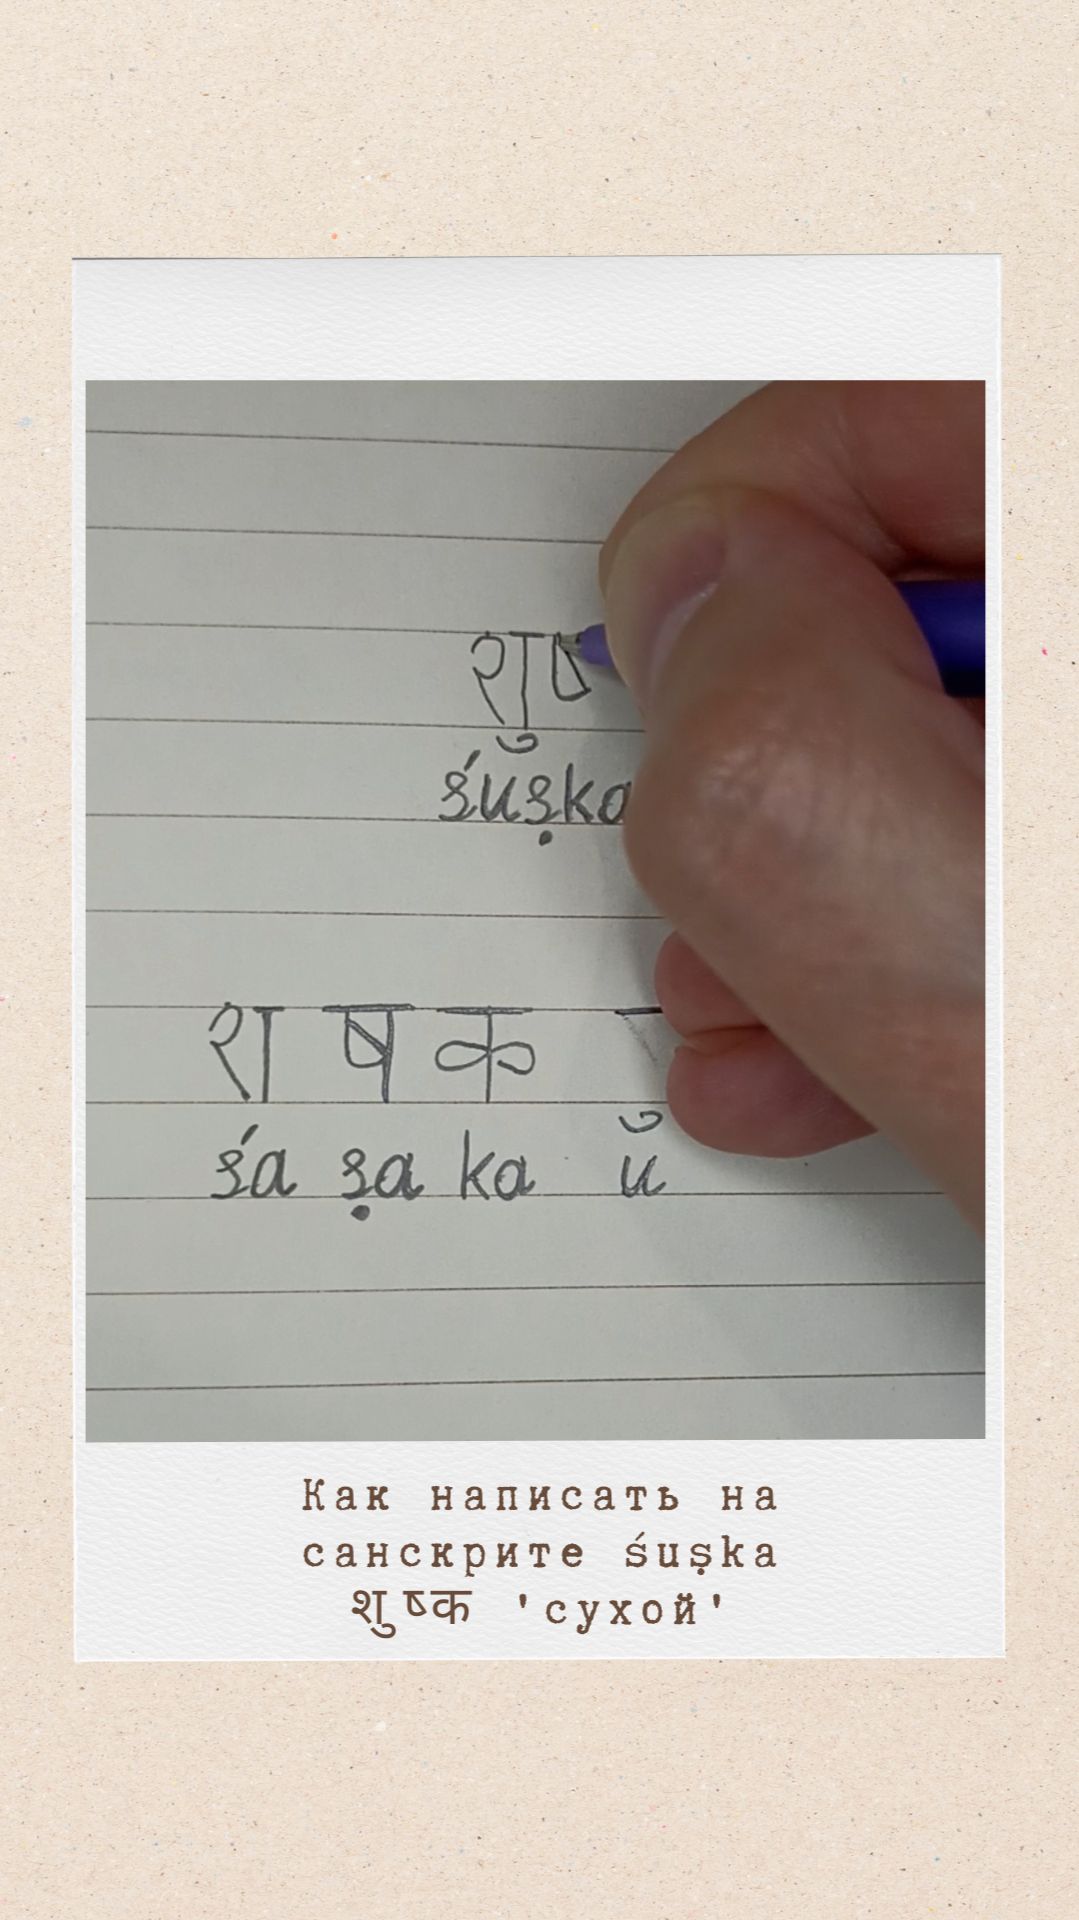 शुष
śuṣka
श ष क ु
śa ṣa ka u
Как написать на
санскрите śuṣka
शुष्क 'сухой'